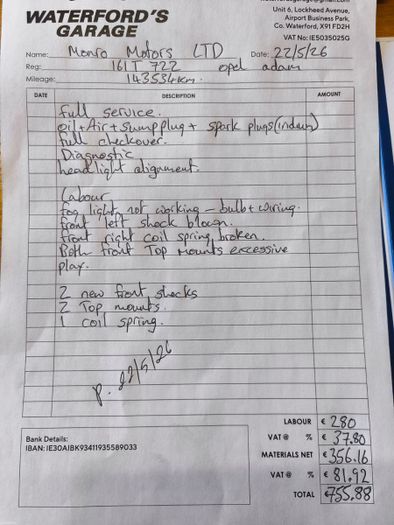 WATERFORD'S
GARAGE
Unit 6, Lockheed Avenue,
Airport Business Park,
Co. Waterford, X91 FD2H
VAT No: IE5035025G
Name: Monro Motors LTD Date: 22/5/26
Reg: 161T 722 opel adam
Mileage: 143534km.
DATE DESCRIPTION AMOUNT
full service.
oil+Air+sumpplug+ spark plugs
full checkover.
Diagnostic
headlight alignment.
Labour
fog light not working - bulb + wiring.
front left shock blown.
front right coil spring broken.
Both front Top Mounts excessive
play.
2 new front shocks
2 Top mounts.
1 coil spring.
P. 22/5/26
LABOUR € 280
VAT @ % € 37.80
MATERIALS NET € 356.16
VAT @ % € 81.92
TOTAL €755.88
Bank Details:
IBAN: IE30AIBK93411935589033